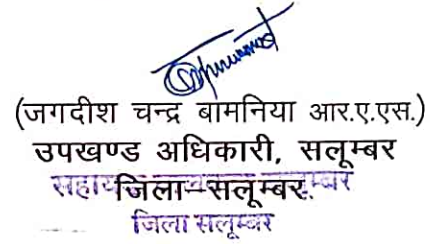 (जगदीश चन्द्र बामनिया आर.ए.एस.)
उपखण्ड अधिकारी, सलूम्बर
जिला–सलूम्बर
जिला सलूम्बर